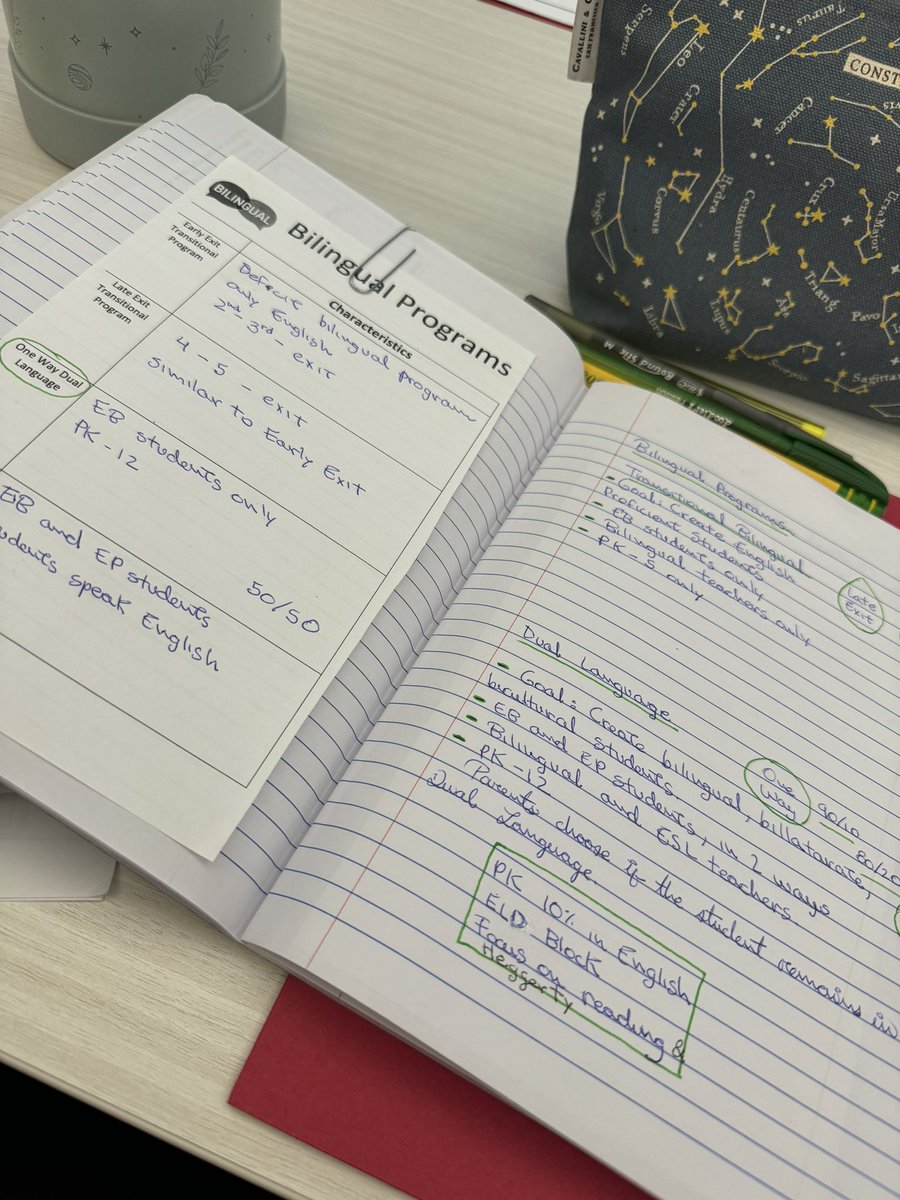 BILINGUAL
Bilingual Programs
Characteristics
Early Exit
Transitional
Program
Deficit bilingual program
only English
2nd - 3rd - exit
Late Exit
Transitional
Program
4 - 5 - exit
Similar to Early Exit
One Way Dual
Language
EB students only
PK - 12
EB and EP students
50/50
students speak English
Bilingual Programs
Transitional Bilingual
- Goal: Create English
Proficient Students
- EB students only
- Bilingual teachers only
- PK - 5 only
Late
Exit
Dual Language
- Goal: Create bilingual, billatarate,
bicultural students
- EB and EP students, in 2 ways
- Bilingual and ESL teachers
- PK - 12
One
Way
90/10
80/20
Parents choose if the student remains in
Dual Language.
PK 10% in English
ELD Block
Focus on reading &
Heggerty
CAVALLINI & C
SAN FRANCISC
CONST
Serpens
Leo
Crater
Taurus
Cancer
Hydra
Corvus
Virgo
Centaurus
Crux
Ursa Major
Libra
Lupus
Ara
Triang
Pavo
Scorpio
Sagitta